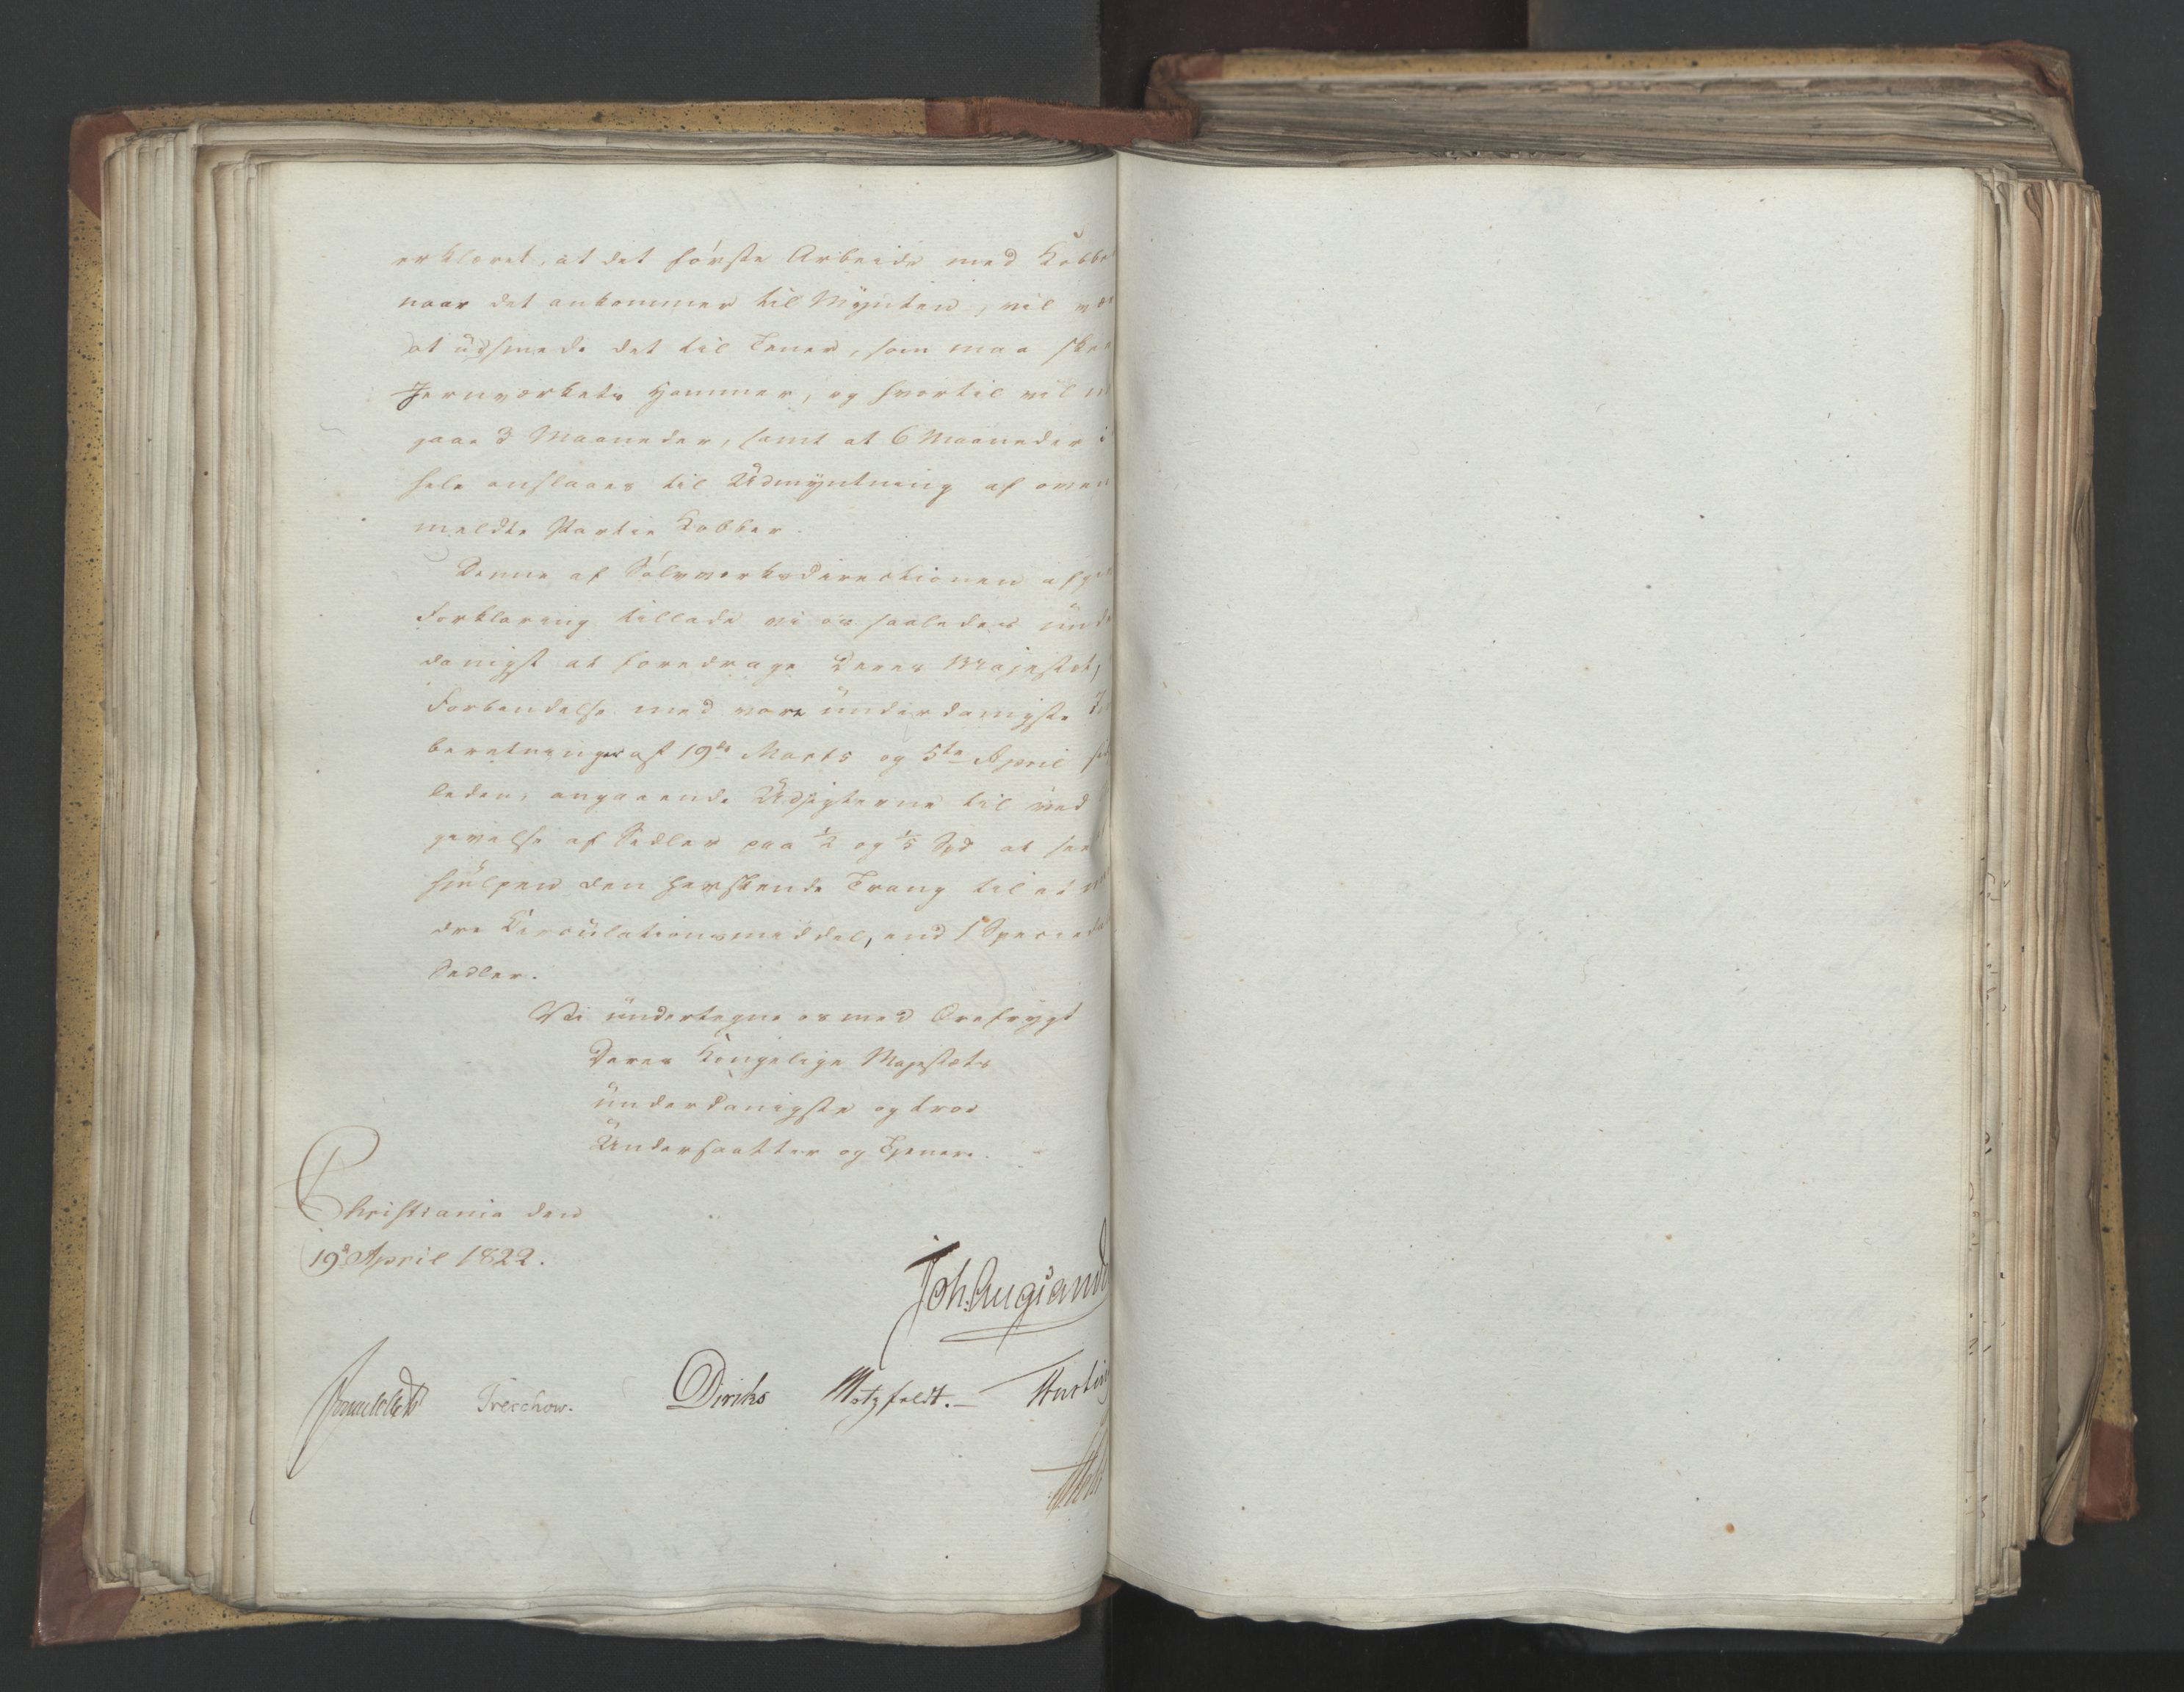 erklæret, at det første Arbeide med Kobbe
naar det ankommer til Mynten, vil væ
at udsmede det til Tener, som maa ske
Jernværkets Hammer, og hvortil vil
gaae 3 Maaneder, samt at 6 Maaneder i
hele anslaaes til Udmyntning af oven
meldte Partie Kobber.
Denne af Sølvværksdirectionen afgi
Forklaring tillade vi os saaledes unde
danigst at foredrage Deres Majestæt,
Forbindelse med vore underdanigste In
beretninger af 19de Marts og 5te April
leden, angaaende Udsigterne til ved
givelse af Sedler paa 1/2 og 1/5 Spd at see
hjulpen den herskende Trang til et
dre Circulationsmiddel, end 1 Specied
Sedler.
Vi undertegne os med Ærefrygt
Deres Kongelige Majestæts
underdanigste og troe
Undersaatter og Tjenere.
Christiania den
19de April 1822.
Joh. Aug. Sand
Sommerhielm Treschow. Diriks Motzfeldt. Fasting
Holst